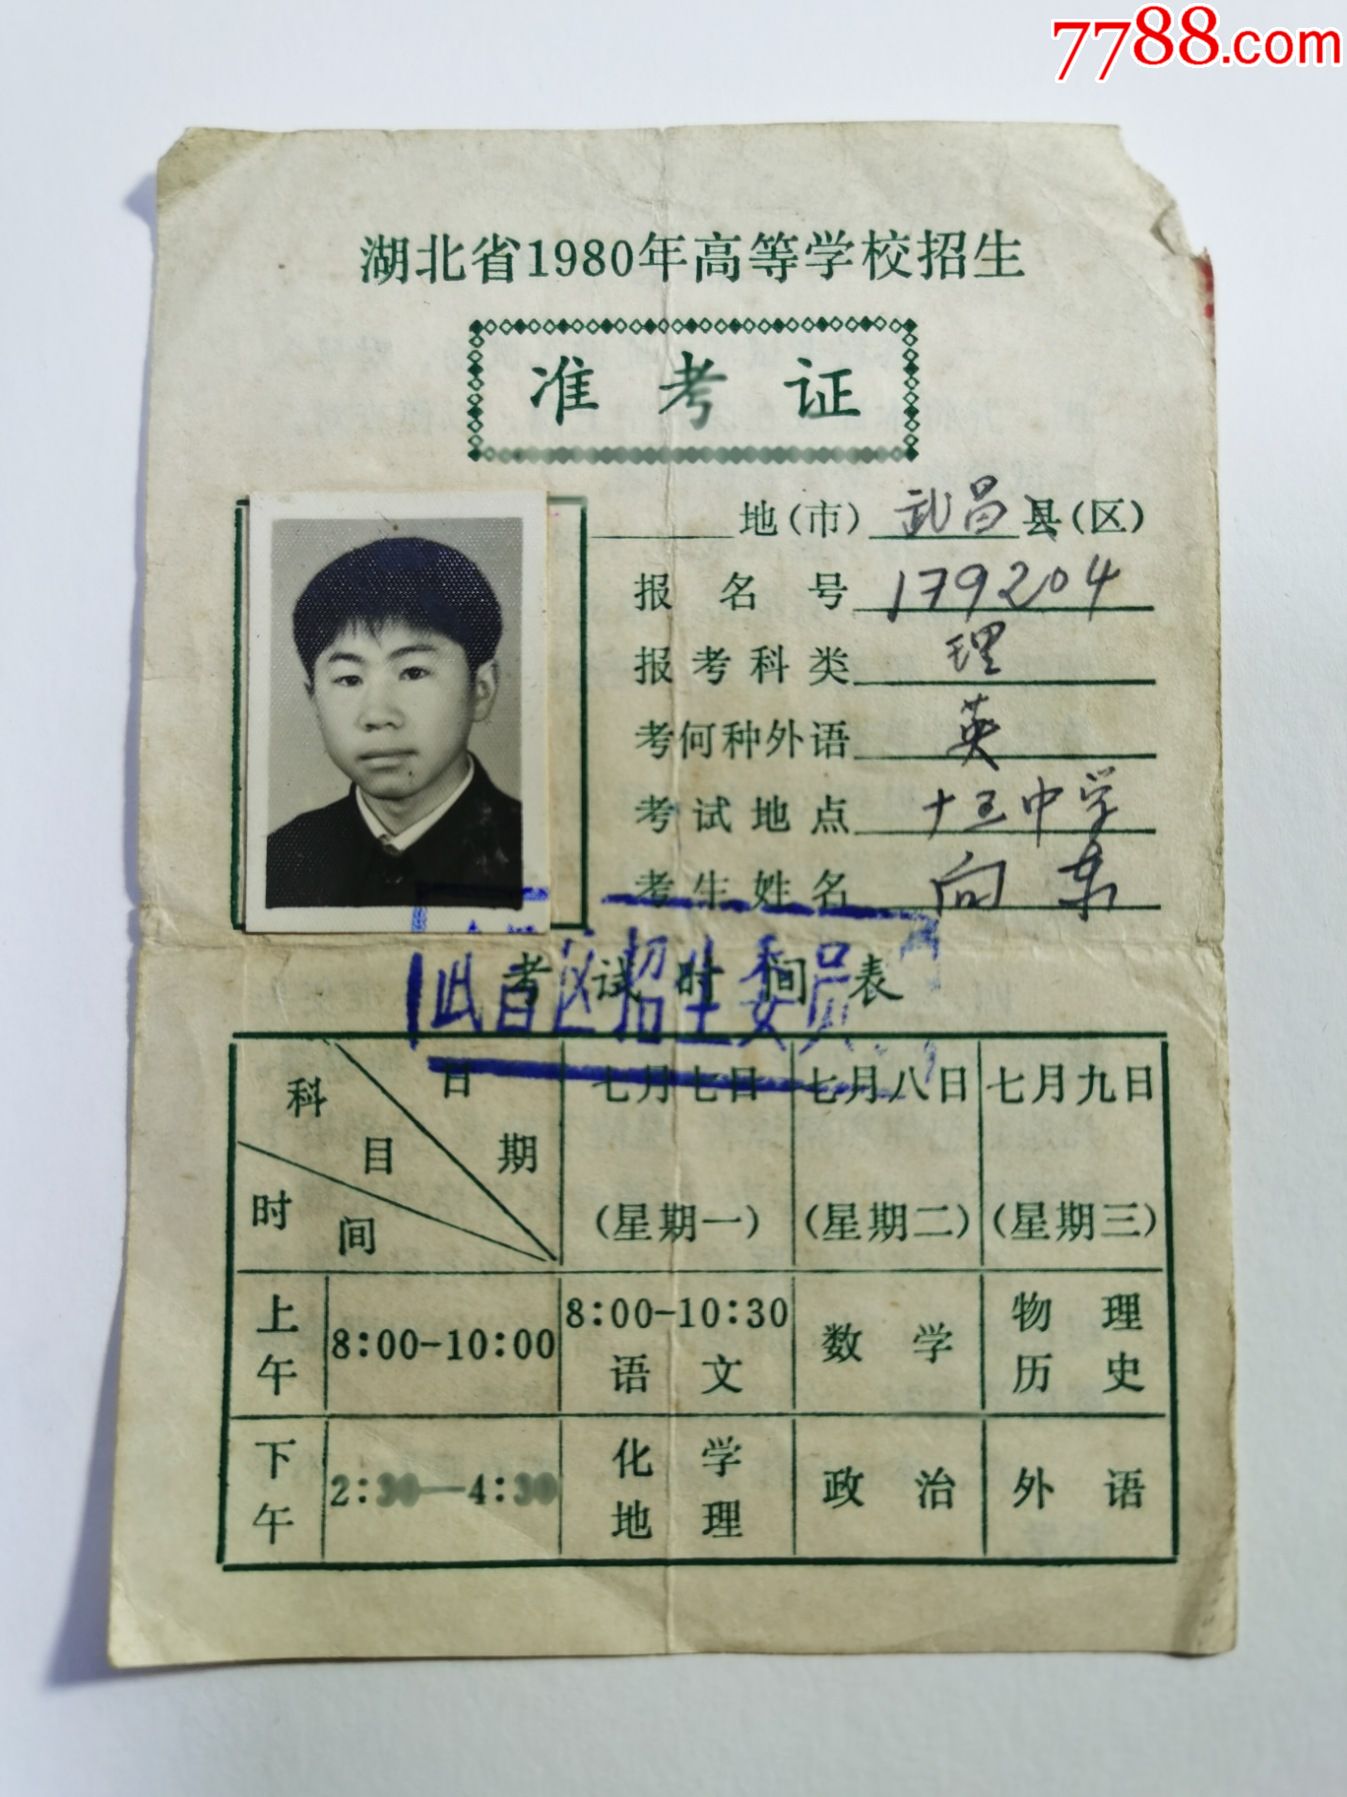 7788.com
湖北省1980年高等学校招生
准考证
地(市) 武昌县(区)
报名号 179204
报考科类 理
考何种外语 英
考试地点 十五中学
考生姓名 向东
武昌区招生委员
考试时间表
科目 日期 时间 七月七日 七月八日 七月九日
(星期一) (星期二) (星期三)
上午 8:00-10:00 8:00-10:30 语文 数学 物理 历史
下午 2:30—4:30 化学 地理 政治 外语